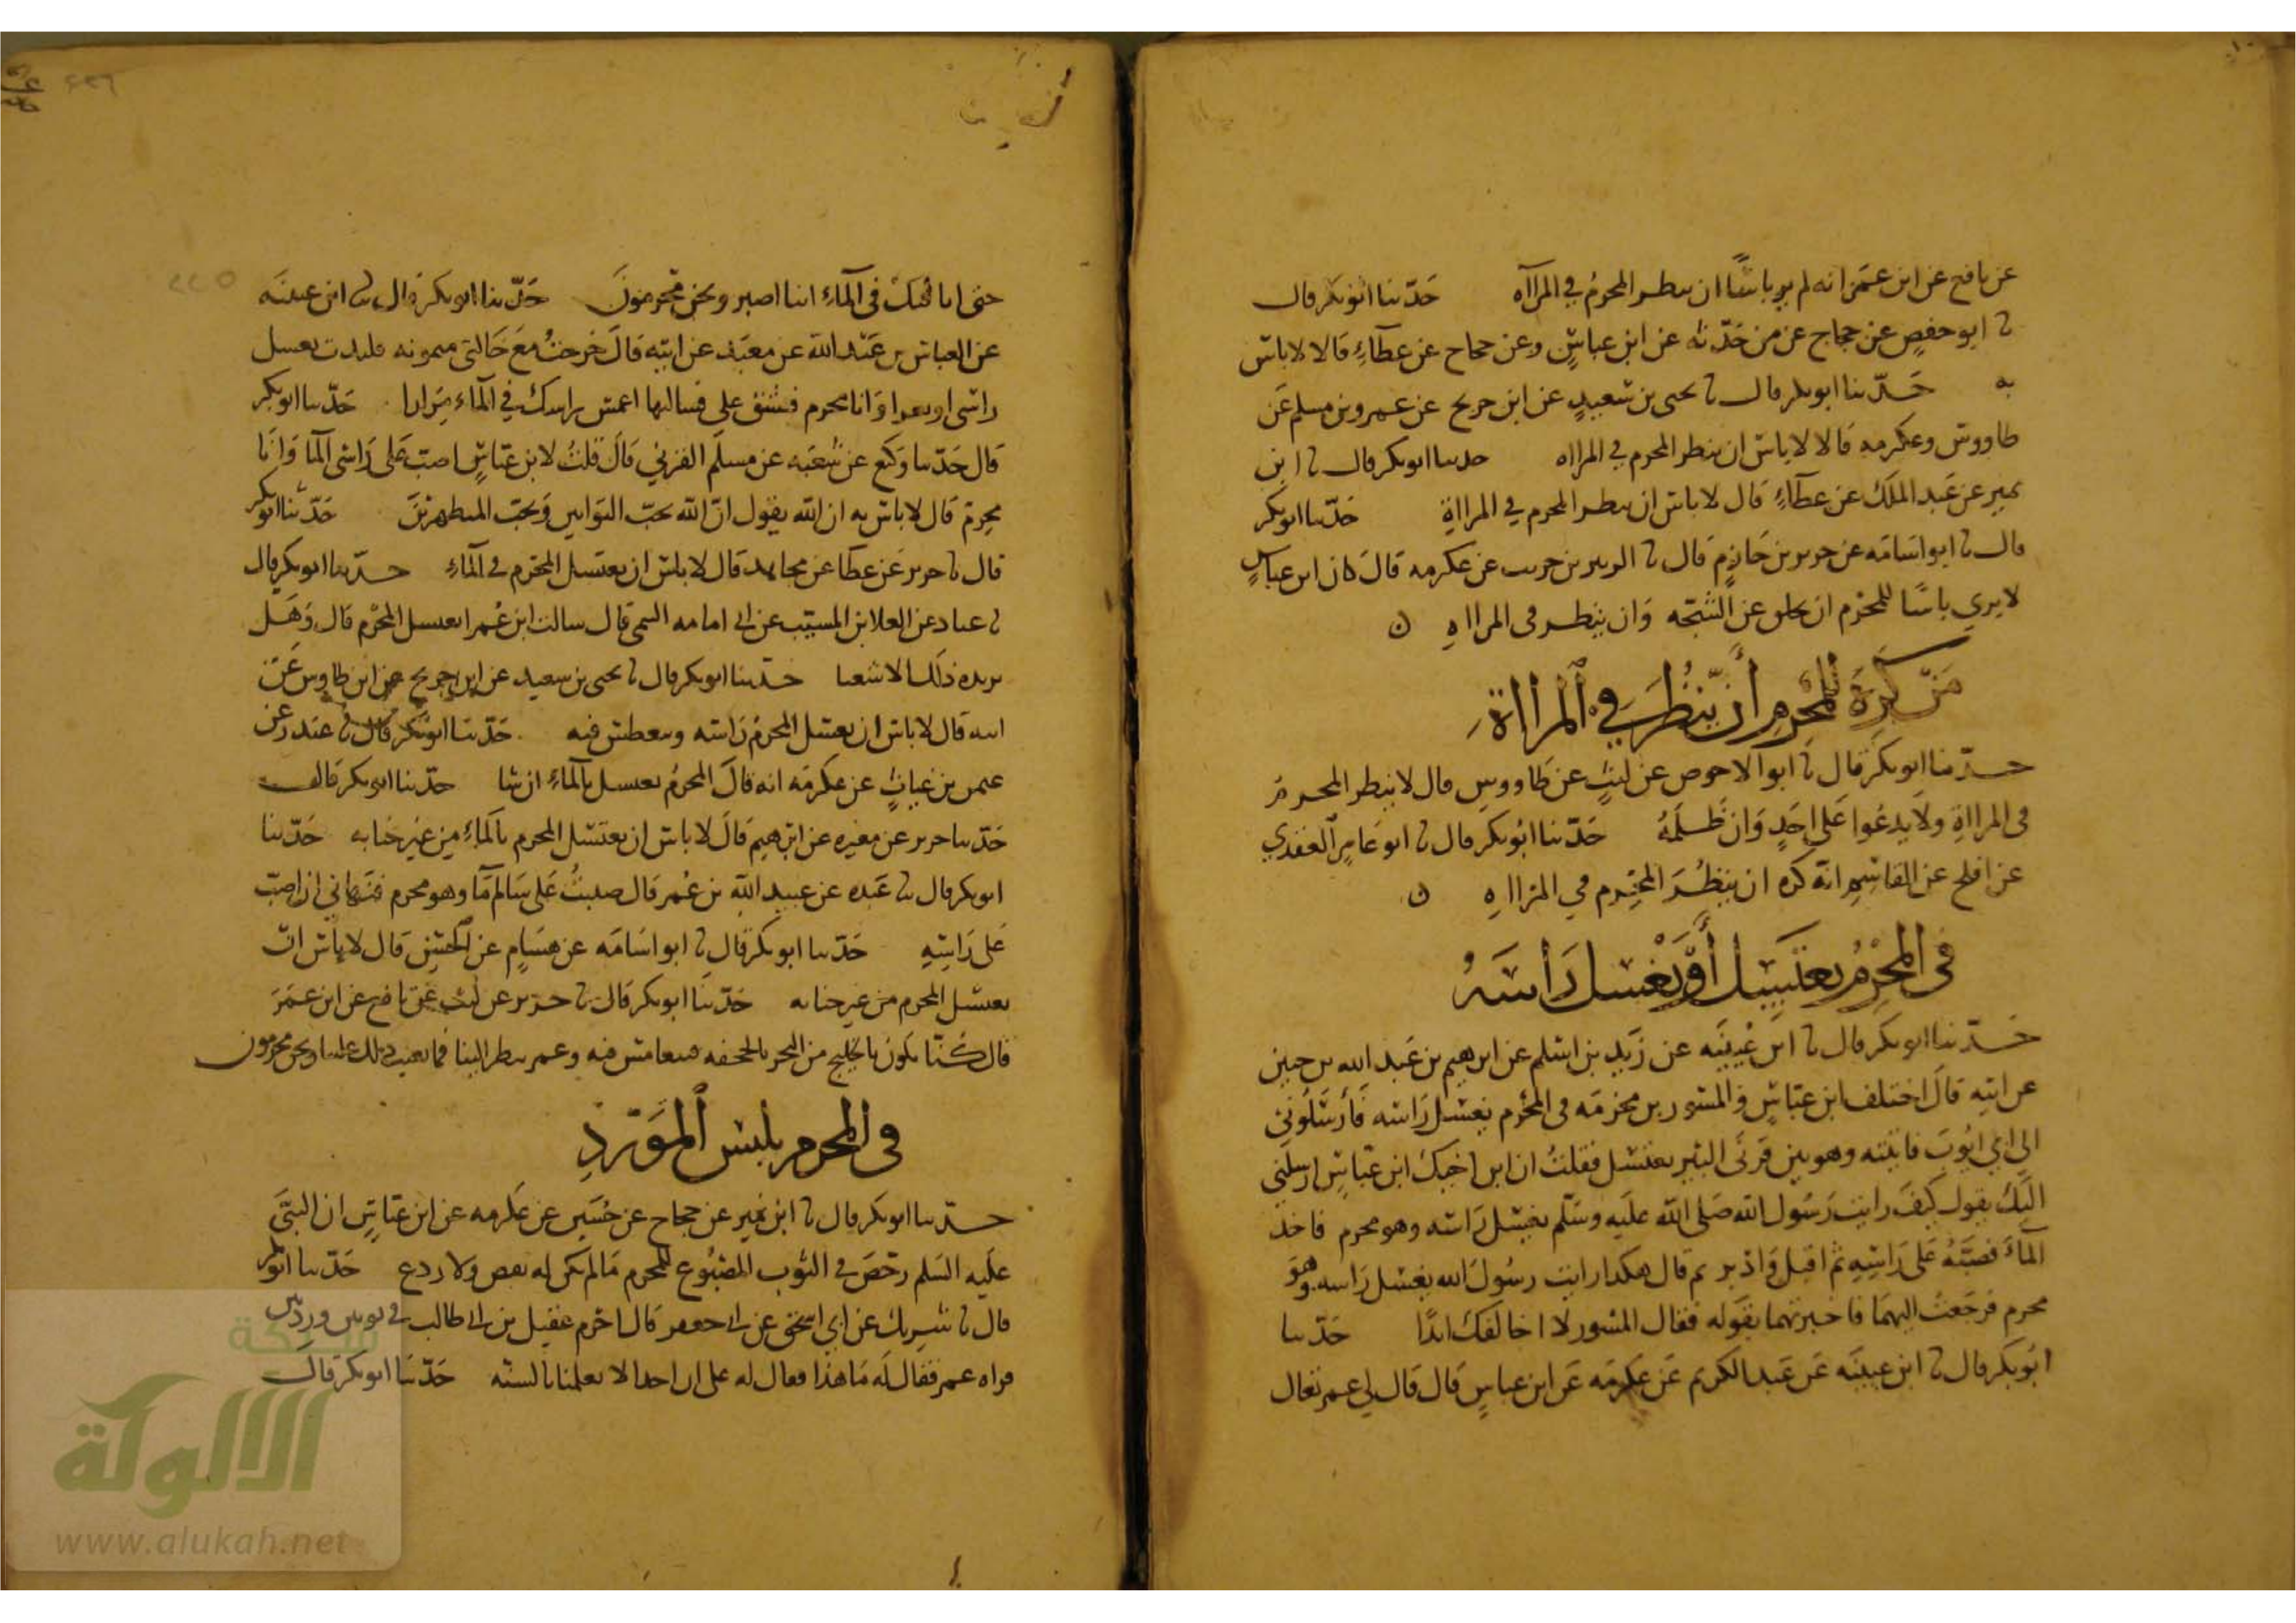 عن نافع عن ابن عمر انه لم ير باسا ان ينظر المحرم في المرااه حدثنا ابو بكر قال
نا ابو حفص عن حجاج عن من حدثه عن ابن عباس وعن حجاح عن عطاء قالا لا باس
به حدثنا ابو بكر قال نا يحيى بن سعيد عن ابن جريج عن عمرو بن مسلم عن
طاووس وعكرمه قالا لا باس ان ينظر المحرم في المرااه حدثنا ابو بكر قال نا ابن
نمير عن عبد الملك عن عطاء قال لا باس ان ينظر المحرم في المرااة حدثنا ابو بكر
قال نا ابو اسامه عن جرير بن حازم قال نا الزبير بن خريت عن عكرمه قال كان ابن عباس
لا يري باسا للمحرم ان يحلق عن الشجه وان ينظر في المرااه ن
من كره للمحرم أن ينظر في المرااة
حدثنا ابو بكر قال نا ابو الاحوص عن ليث عن طاووس قال لا ينظر المحرم
في المرااة ولا يدعوا على احد وان ظلمه حدثنا ابو بكر قال نا ابو عامر العقدي
عن افلح عن القاسم انه كره ان ينظر المحرم في المرااه ن
في المحرم يغتسل أو يغسل راسه
حدثنا ابو بكر قال نا ابن عيينه عن زيد بن اسلم عن ابرهيم بن عبد الله بن حنين
عن ابيه قال اختلف ابن عباس والمسور بن مخرمه في المحرم يغسل راسه فأرسلوني
الى ابي ايوب فاتيته وهو بين قرني البير يغتسل فقلت ان ابن اخيك ابن عباس ارسلني
اليك يقول كيف رايت رسول الله صلى الله عليه وسلم يغسل راسه وهو محرم فاخذ
الماء فصبه على راسه ثم اقبل وادبر ثم قال هكذا رايت رسول الله يغسل راسه وهو
محرم فرجعت اليهما فاخبرتهما بقوله فقال المسور لا اخالفك ابدا حدثنا
ابو بكر قال نا ابن عيينه عن عبد الكريم عن عكرمه عن ابن عباس قال قال لي عمر تعال
حتى اباقيك في الماء اينا اصبر ونحن محرمون حدثنا ابو بكر قال نا ابن عيينه
عن العباس بن عبد الله عن معبد عن ابيه قال خرجت مع خالتي ميمونه فلبدت بعسل
راسي او بغرا وانا محرم فشق علي فسالتها اغمس راسك في الماء مرارا حدثنا ابو بكر
قال حدثنا وكيع عن شعبه عن مسلم القري قال قلت لابن عباس اصب على راسي الما وانا
محرم قال لا باس به ان الله يقول ان الله يحب التوابين ويحب المتطهرين حدثنا ابو بكر
قال نا جرير عن عطا عن مجاهد قال لا باس ان يغتسل المحرم في الماء حدثنا ابو بكر قال
نا عباد عن العلا بن المسيب عن ابي امامه التيمي قال سالت ابن عمر ايغتسل المحرم قال وهل
يزيده ذلك الا شعثا حدثنا ابو بكر قال نا يحيى بن سعيد عن ابن جريج عن ابن طاوس عن
ابيه قال لا باس ان يغسل المحرم راسه ويغطس فيه حدثنا ابو بكر قال نا غندر عن
عثمن بن غياث عن عكرمه انه قال المحرم يغتسل بالماء ان شا حدثنا ابو بكر قال
حدثنا جرير عن مغيره عن ابرهيم قال لا باس ان يغتسل المحرم بالماء من غير جنابه حدثنا
ابو بكر قال نا عبده عن عبيد الله بن عمر قال صببت على سالم ما وهو محرم فنهاني ان اصب
على راسه حدثنا ابو بكر قال نا ابو اسامه عن هشام عن الحسن قال لا باس ان
يغتسل المحرم من غير جنابه حدثنا ابو بكر قال نا جرير عن ليث عن نافع عن ابن عمر
قال كنا نكون بالخليج من البحر بالجحفه فنتغامس فيه وعمر ينظر الينا فما يعيب ذلك علينا ونحن محرمون
في المحرم يلبس المورد
حدثنا ابو بكر قال نا ابن نمير عن حجاج عن حسين عن عكرمه عن ابن عباس ان النبي
عليه السلم رخص في الثوب المصبوغ للمحرم ما لم يكن له نفض ولا ردع حدثنا ابو بكر
قال نا شريك عن ابي اسحق عن ابي جعفر قال احرم عقيل بن ابي طالب في ثوبين وردين
فراه عمر فقال له ما هذا فقال له علي ان احدا لا يعلمنا بالسنه حدثنا ابو بكر قال
٢٢٥
شبكة
الألوكة
www.alukah.net